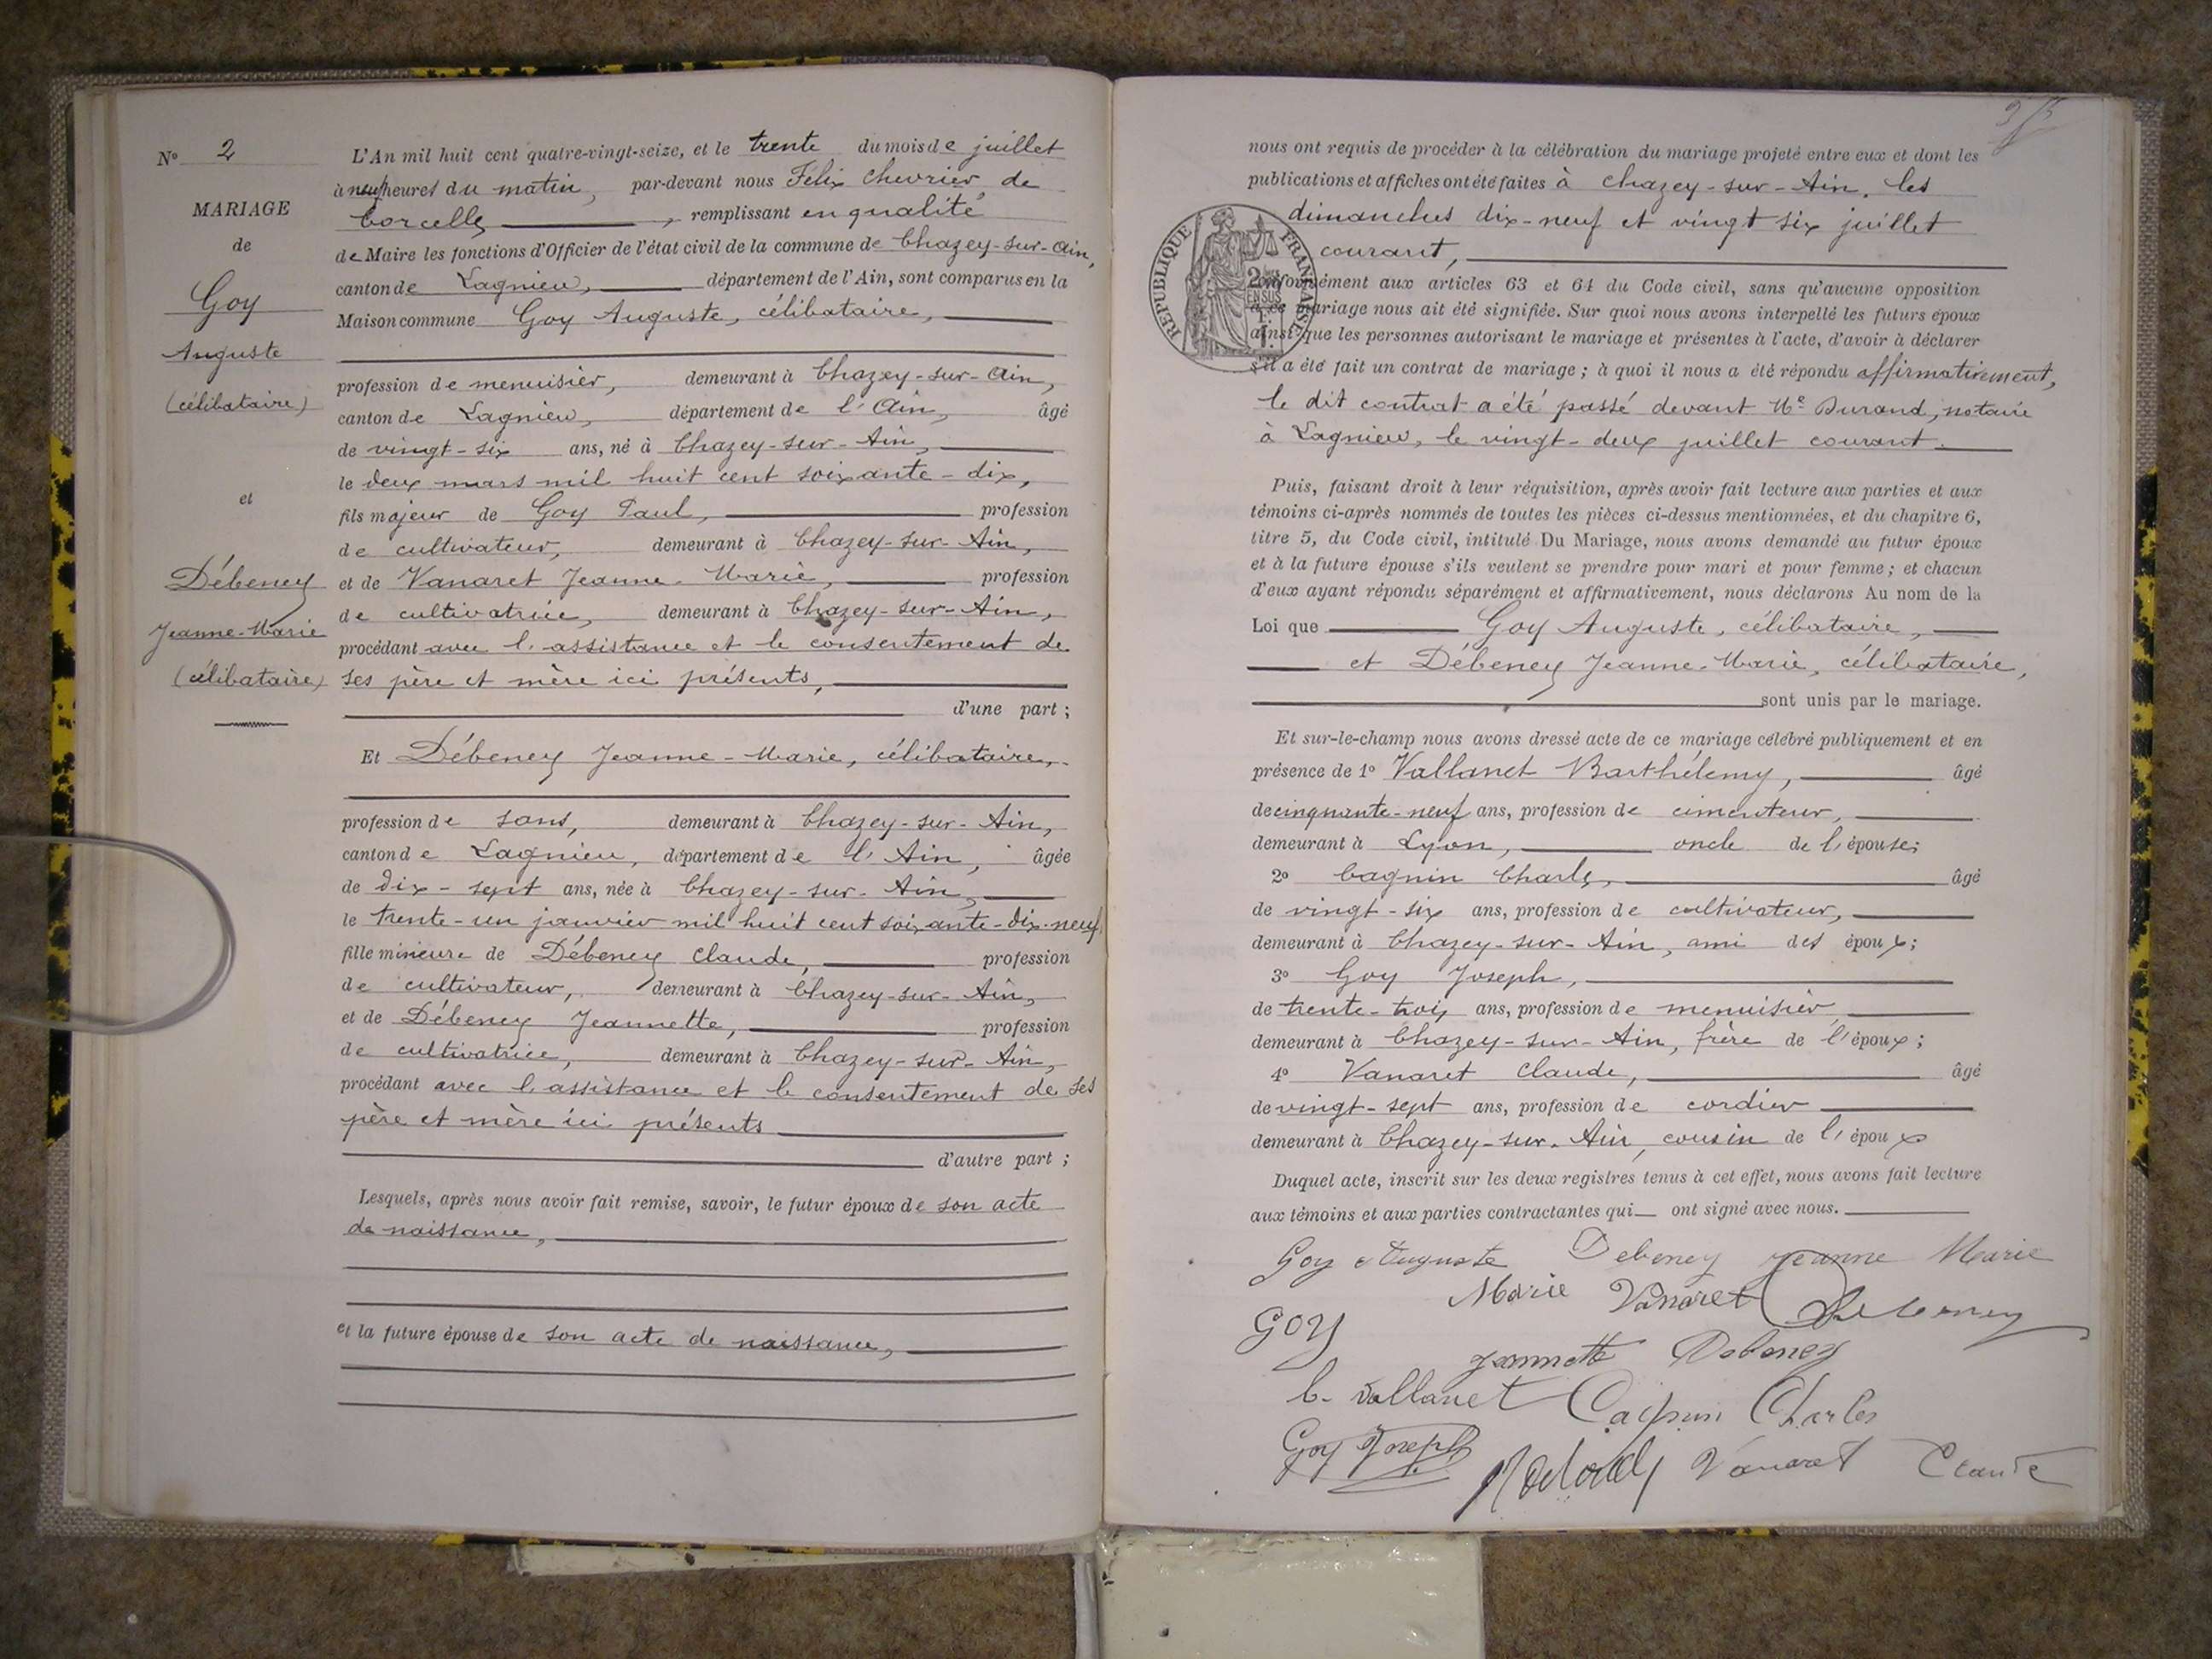 N° 2
MARIAGE
de
Goy
Auguste
(célibataire)
et
Débeney
Jeanne-Marie
(célibataire)
L'An mil huit cent quatre-vingt-seize, et le trente du mois de juillet
à neuf heures du matin, par-devant nous Félix Chevrier de
Corcelles, remplissant en qualité
de Maire les fonctions d'Officier de l'état civil de la commune de Chazey-sur-Ain,
canton de Lagnieu, département de l'Ain, sont comparus en la
Maison commune Goy Auguste, célibataire,
profession de menuisier, demeurant à Chazey-sur-Ain,
canton de Lagnieu, département de l'Ain, âgé
de vingt-six ans, né à Chazey-sur-Ain,
le deux mars mil huit cent soixante-dix,
fils majeur de Goy Paul, profession
de cultivateur, demeurant à Chazey-sur-Ain,
et de Vanaret Jeanne-Marie, profession
de cultivatrice, demeurant à Chazey-sur-Ain,
procédant avec l'assistance et le consentement de
ses père et mère ici présents,
d'une part ;
Et Débeney Jeanne-Marie, célibataire,
profession de sans, demeurant à Chazey-sur-Ain,
canton de Lagnieu, département de l'Ain, âgée
de dix-sept ans, née à Chazey-sur-Ain,
le trente-un janvier mil huit cent soixante-dix-neuf,
fille mineure de Débeney Claude, profession
de cultivateur, demeurant à Chazey-sur-Ain,
et de Débeney Jeannette, profession
de cultivatrice, demeurant à Chazey-sur-Ain,
procédant avec l'assistance et le consentement de ses
père et mère ici présents
d'autre part ;
Lesquels, après nous avoir fait remise, savoir, le futur époux de son acte
de naissance,
et la future épouse de son acte de naissance,
nous ont requis de procéder à la célébration du mariage projeté entre eux et dont les
publications et affiches ont été faites à Chazey-sur-Ain, les
dimanches dix-neuf et vingt six juillet
courant,
REPUBLIQUE FRANÇAISE
conformément aux articles 63 et 64 du Code civil, sans qu'aucune opposition
à ce mariage nous ait été signifiée. Sur quoi nous avons interpellé les futurs époux
ainsi que les personnes autorisant le mariage et présentes à l'acte, d'avoir à déclarer
s'il a été fait un contrat de mariage ; à quoi il nous a été répondu affirmativement,
le dit contrat a été passé devant Me Durand, notaire
à Lagnieu, le vingt-deux juillet courant.
Puis, faisant droit à leur réquisition, après avoir fait lecture aux parties et aux
témoins ci-après nommés de toutes les pièces ci-dessus mentionnées, et du chapitre 6,
titre 5, du Code civil, intitulé Du Mariage, nous avons demandé au futur époux
et à la future épouse s'ils veulent se prendre pour mari et pour femme ; et chacun
d'eux ayant répondu séparément et affirmativement, nous déclarons Au nom de la
Loi que Goy Auguste, célibataire,
et Débeney Jeanne-Marie, célibataire,
sont unis par le mariage.
Et sur-le-champ nous avons dressé acte de ce mariage célébré publiquement et en
présence de 1° Vallanet Barthélemy, âgé
de cinquante-neuf ans, profession de cimenteur,
demeurant à Lyon, oncle de l'épouse ;
2° Cagnin Charles, âgé
de vingt-six ans, profession de cultivateur,
demeurant à Chazey-sur-Ain, ami des époux ;
3° Goy Joseph,
de trente-trois ans, profession de menuisier,
demeurant à Chazey-sur-Ain, frère de l'époux ;
4° Vanaret Claude, âgé
de vingt-sept ans, profession de cordier
demeurant à Chazey-sur-Ain, cousin de l'époux
Duquel acte, inscrit sur les deux registres tenus à cet effet, nous avons fait lecture
aux témoins et aux parties contractantes qui ont signé avec nous.
Goy Auguste Debeney Jeanne Marie
Marie Vanaret Debeney
GOY
Jeannette Debeney
b. vallanet Cagnin Charles
Goy Joseph Vanaret Claude